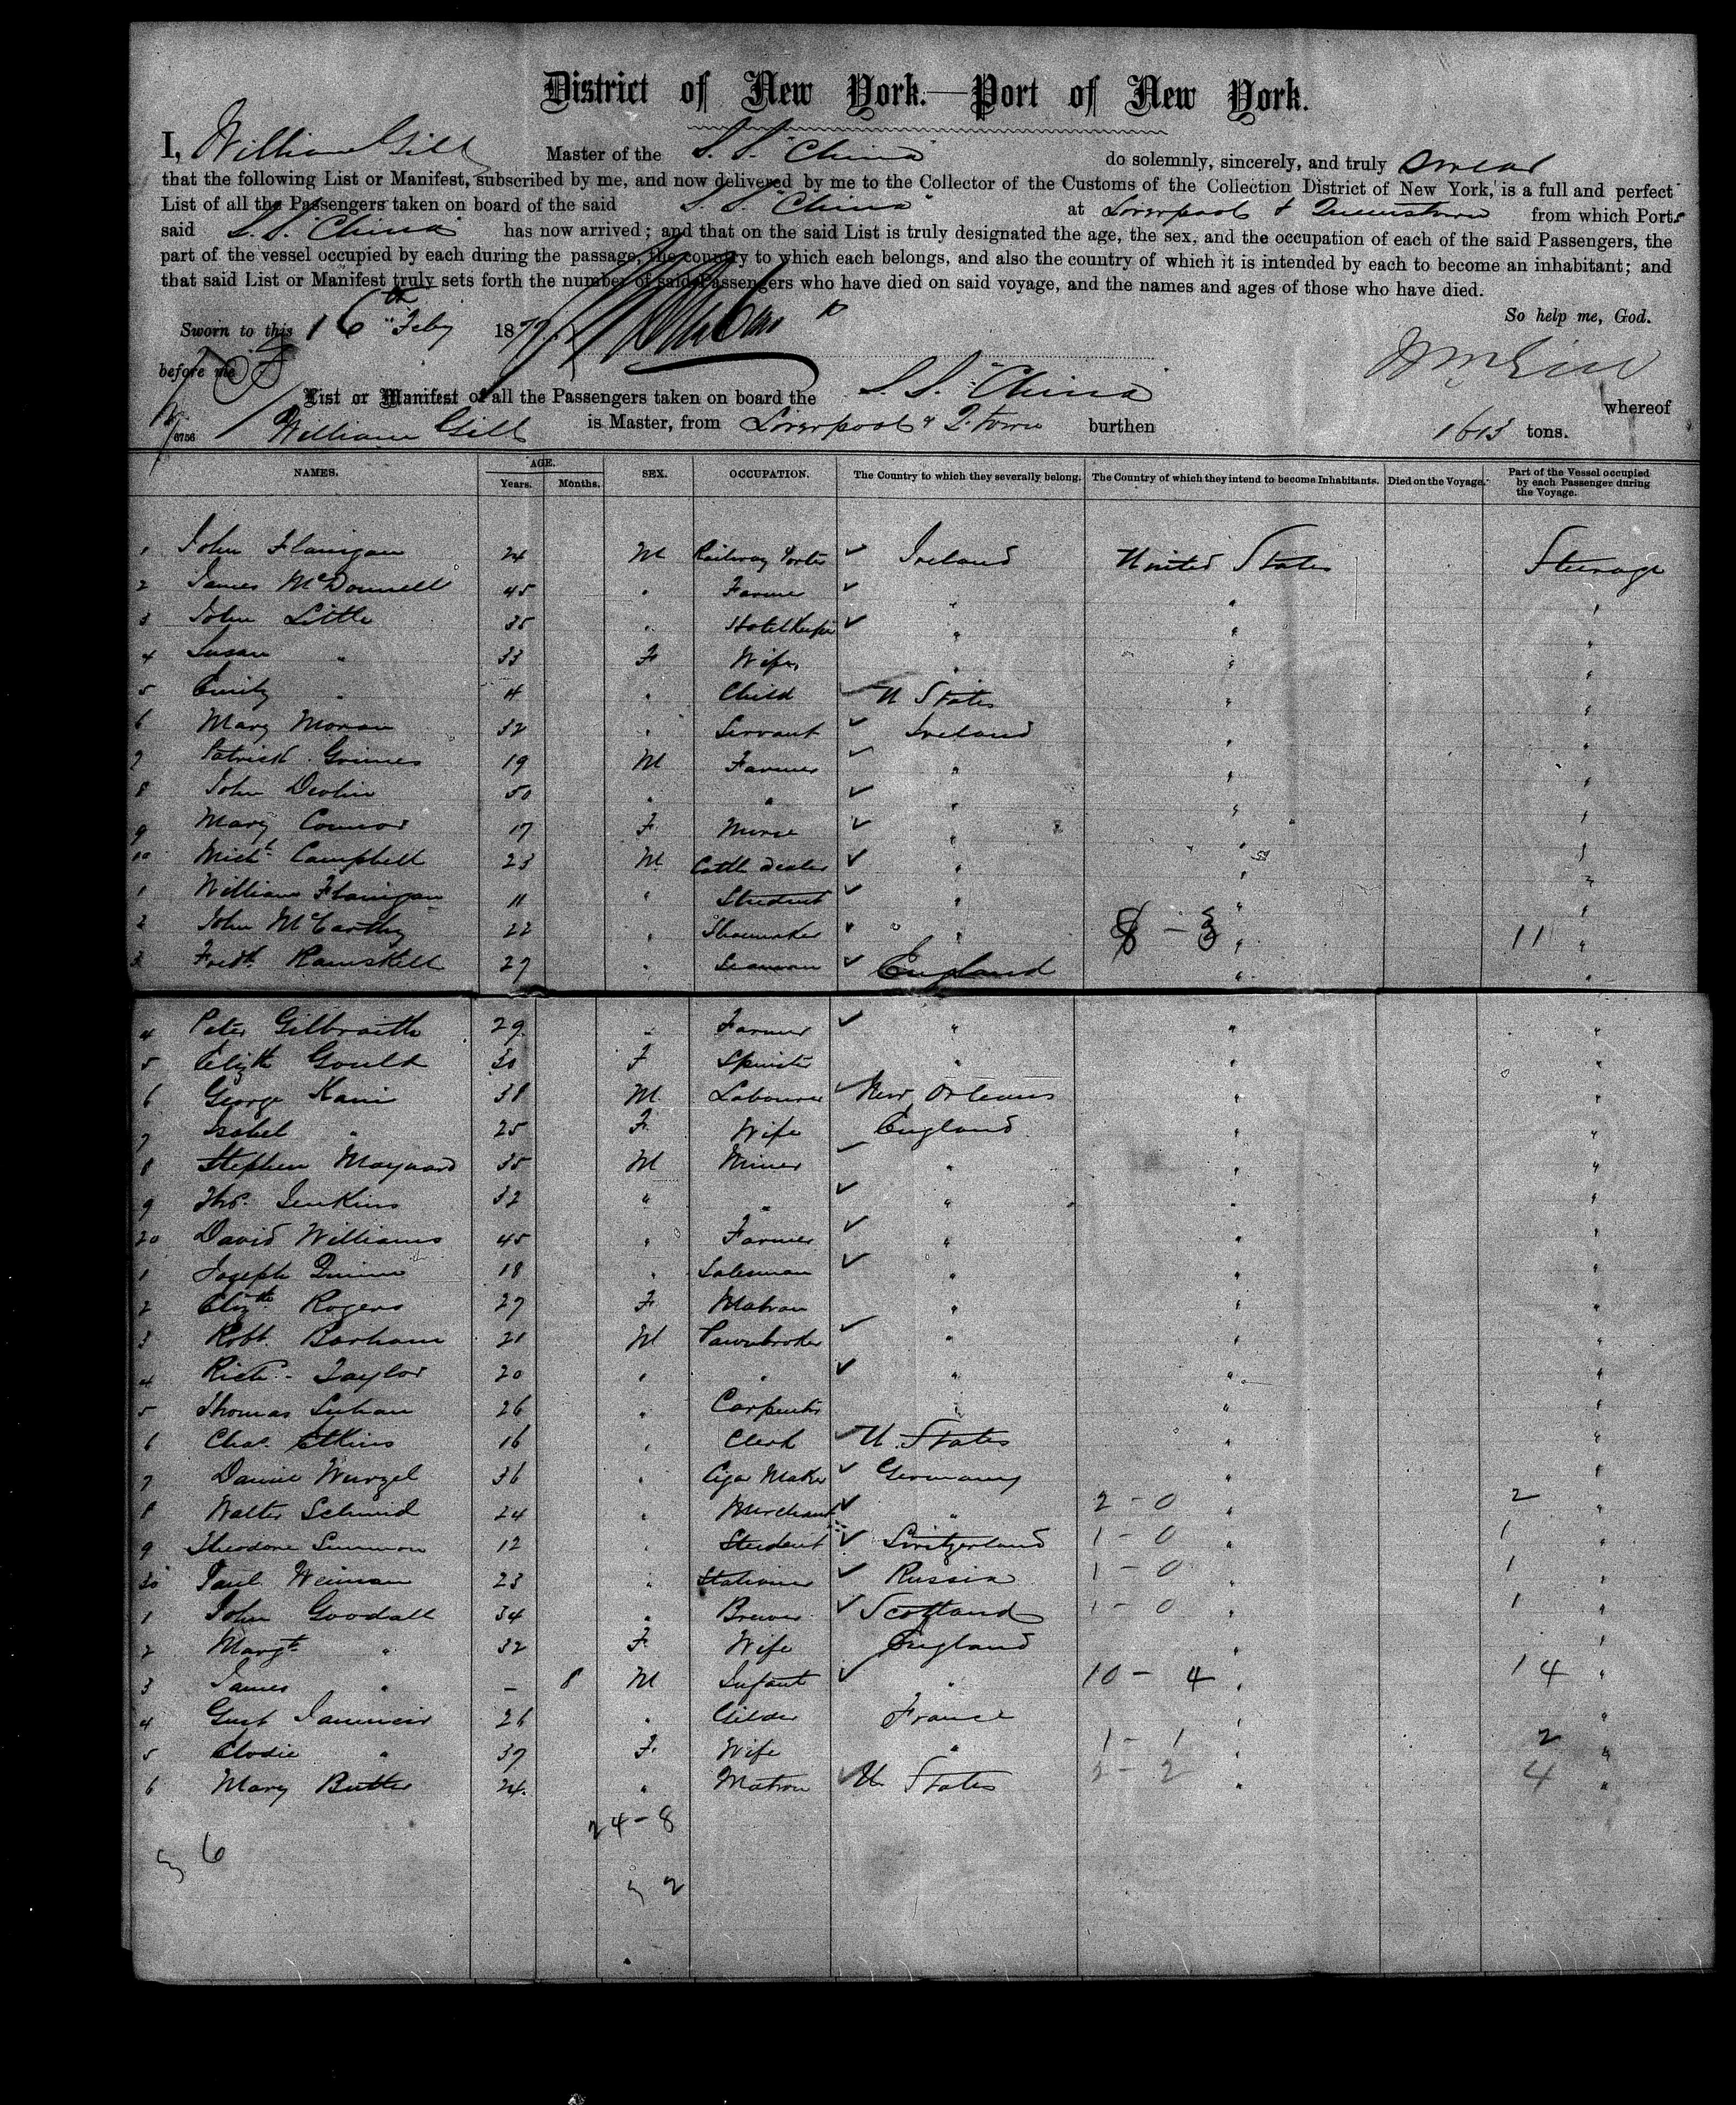 District of New York.—Port of New York.
I, William Gill Master of the S.S. "China" do solemnly, sincerely, and truly swear
that the following List or Manifest, subscribed by me, and now delivered by me to the Collector of the Customs of the Collection District of New York, is a full and perfect
List of all the Passengers taken on board of the said S.S. "China" at Liverpool & Queenstown from which Ports
said S.S. "China" has now arrived; and that on the said List is truly designated the age, the sex, and the occupation of each of the said Passengers, the
part of the vessel occupied by each during the passage, the country to which each belongs, and also the country of which it is intended by each to become an inhabitant; and
that said List or Manifest truly sets forth the number of said Passengers who have died on said voyage, and the names and ages of those who have died.
So help me, God.
Sworn to this 16th Feby 1879
before me Wm Gill
List or Manifest of all the Passengers taken on board the S.S. "China" whereof
6756 William Gill is Master, from Liverpool & Q.town burthen 1613 tons.
NAMES. AGE. Years. Months. SEX. OCCUPATION. The Country to which they severally belong. The Country of which they intend to become Inhabitants. Died on the Voyage. Part of the Vessel occupied by each Passenger during the Voyage.
1 John Flanigan 24 M Railway Porter ✓ Ireland United States Steerage
2 James McDonnell 45 " Farmer ✓ " " "
3 John Little 35 " Hotel Keeper ✓ " " "
4 Susan " 33 F Wife " " "
5 Emily " 4 " Child ✓ U States " "
6 Mary Moran 32 " Servant ✓ Ireland " "
7 Patrick Grimes 19 M Farmer ✓ " " "
8 John Devlin 50 " " ✓ " " "
9 Mary Connor 17 F Nurse ✓ " " "
10 Micht Campbell 23 M Cattle Dealer ✓ " " "
1 William Flanigan 11 " Student ✓ " " "
2 John McCarthy 22 " Shoemaker " " 8 - 3 " 11 "
3 Fredk Ramskell 27 " Seaman ✓ England " "
4 Peter Gilbraith 29 " Farmer ✓ " " "
5 Elizth Gould 30 F Spinster " " "
6 George Kain 38 M Labourer ✓ New Orleans " "
7 Isabel " 25 F Wife England " "
8 Stephen Maynard 35 M Miner ✓ " " "
9 Thos. Jenkins 32 " " ✓ " " "
20 David Williams 45 " Farmer ✓ " " "
1 Joseph Quinn 18 " Salesman ✓ " " "
2 Elizth Rogers 27 F Matron " " "
3 Robt. Barham 21 M Pawnbroker ✓ " " "
4 Richd. Taylor 20 " " ✓ " " "
5 Thomas 26 " Carpenter " " "
6 Chas. Atkins 16 " Clerk ✓ U. States " "
7 Daniel Wurzel 36 " Cigar Maker ✓ Germany " "
8 Walter Schmid 24 " Merchant ✓ " 2 - 0 " 2 "
9 Theodore 12 " Student ✓ Switzerland 1 - 0 " 1 "
30 Paul Weiman 23 " Stationer ✓ Russia 1 - 0 " 1 "
1 John Goodall 34 " Brewer ✓ Scotland 1 - 0 " 1 "
2 Margt " 32 F Wife England " "
3 James " - 8 M Infant ✓ " 10 - 4 " 14 "
4 Gust 26 " Gilder France " "
5 Elodie " 37 F Wife " 1 - 1 " 2 "
6 Mary Butler 24. " Matron ✓ U. States 2 - 2 " 4 "
24 - 8
36
32